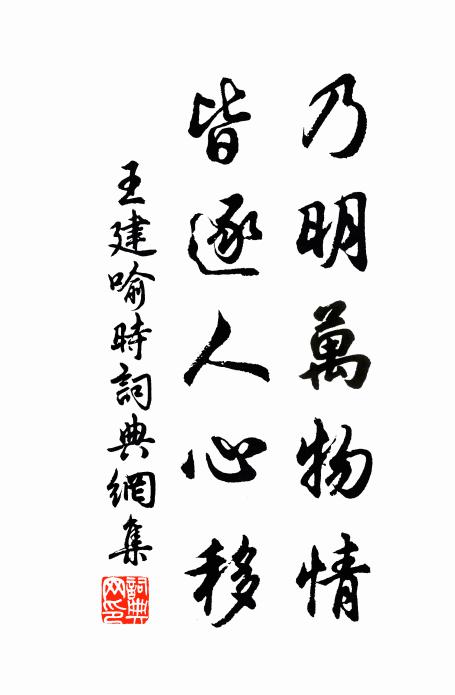 乃明萬物情
皆逐人心移
王建喻時詞典網集
詞典網印